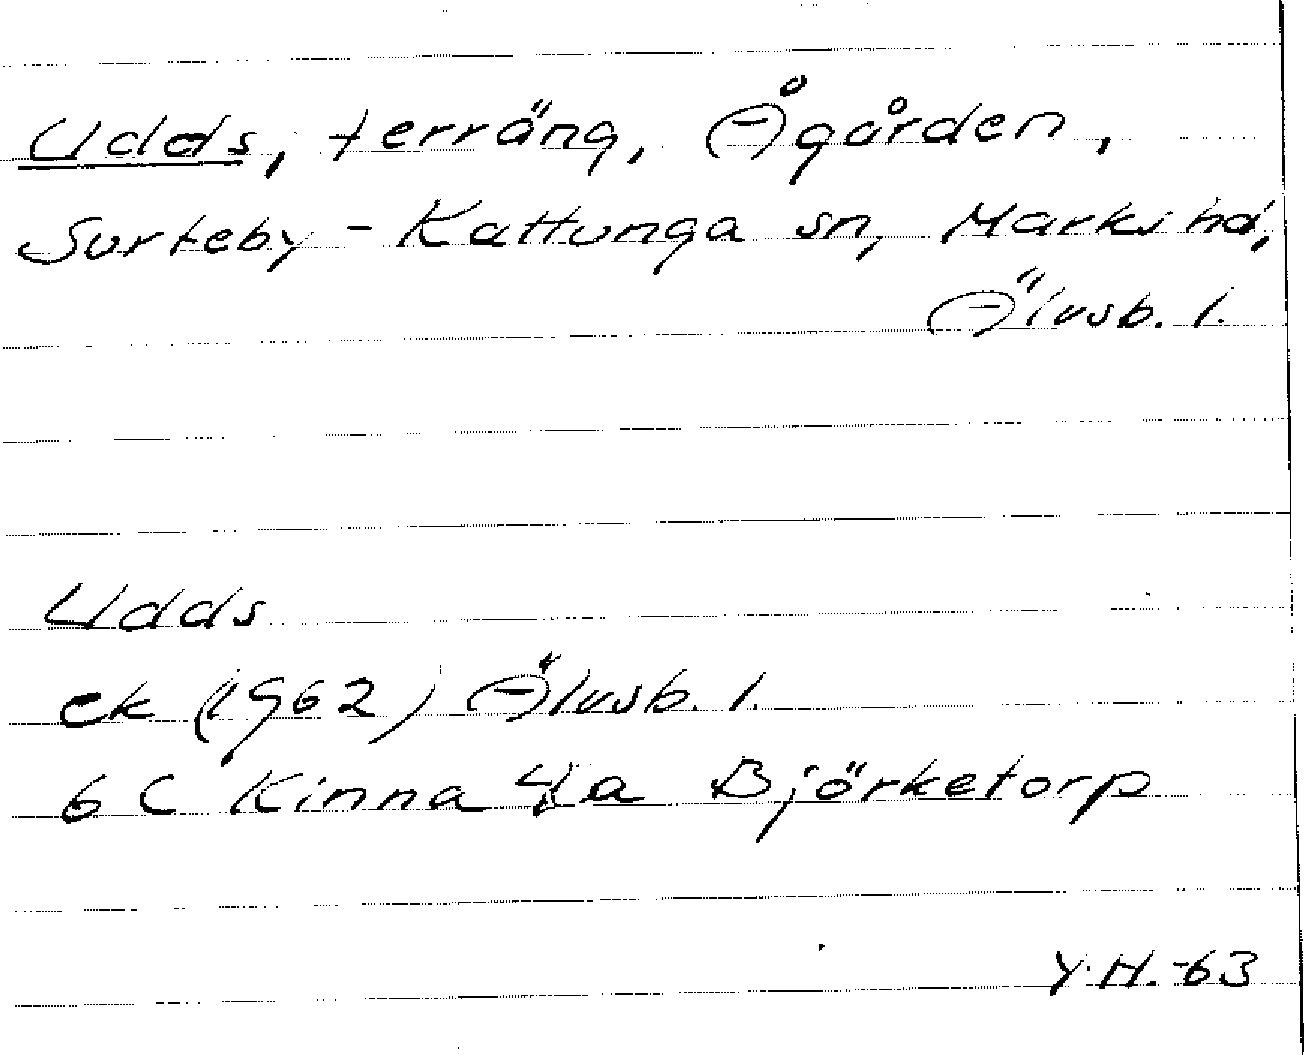 Udds, terräng, Ågården,
Surteby-Kattunga sn, Marks hd,
Älvsb. l.
Udds
ek (1962) Älvsb. l.
6 C Kinna 4 a Björketorp
Y.H.-63